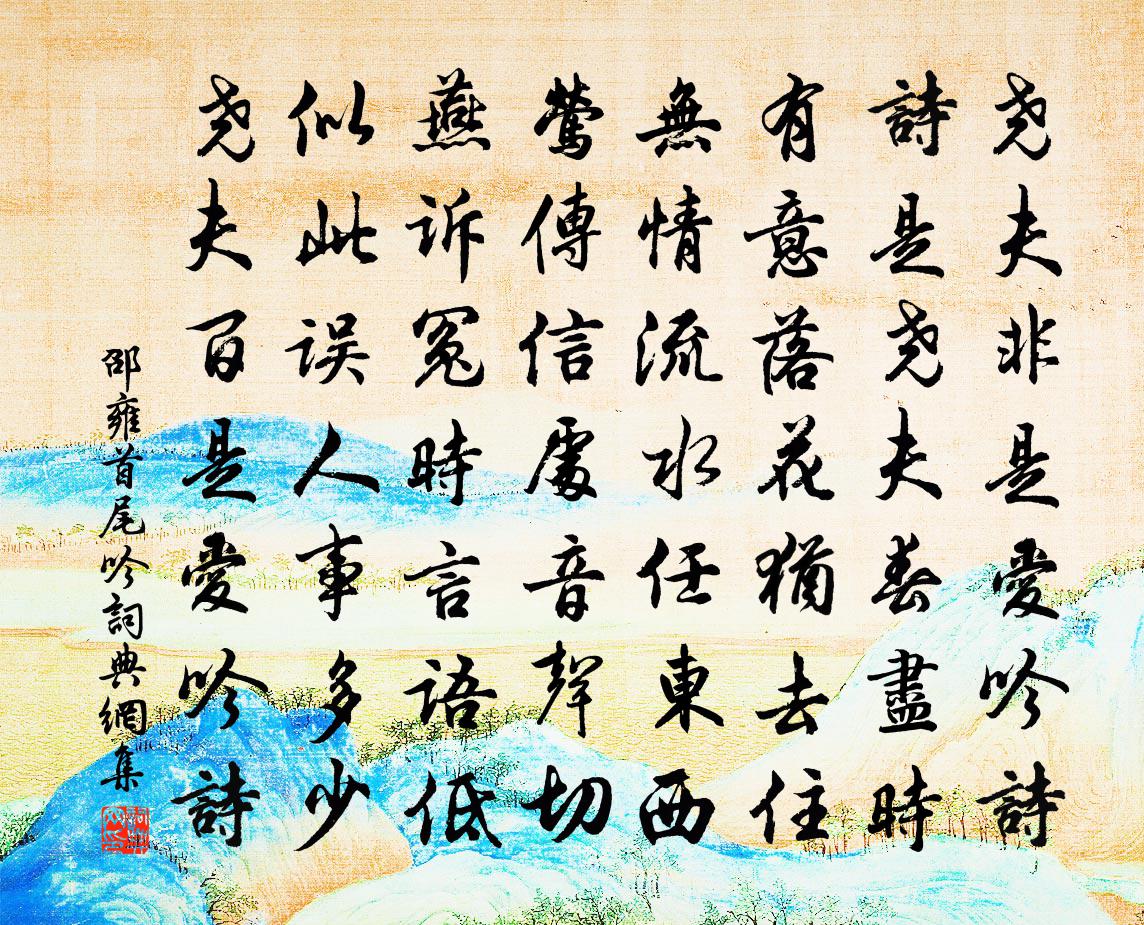 尧夫非是愛吟詩
詩是尧夫春盡時
有意落花猶去住
無情流水任東西
鶯傳信處音聲切
燕诉冤時言語低
似此误人事多少
尧夫百是愛吟詩
邵雍首尾吟詞典網集